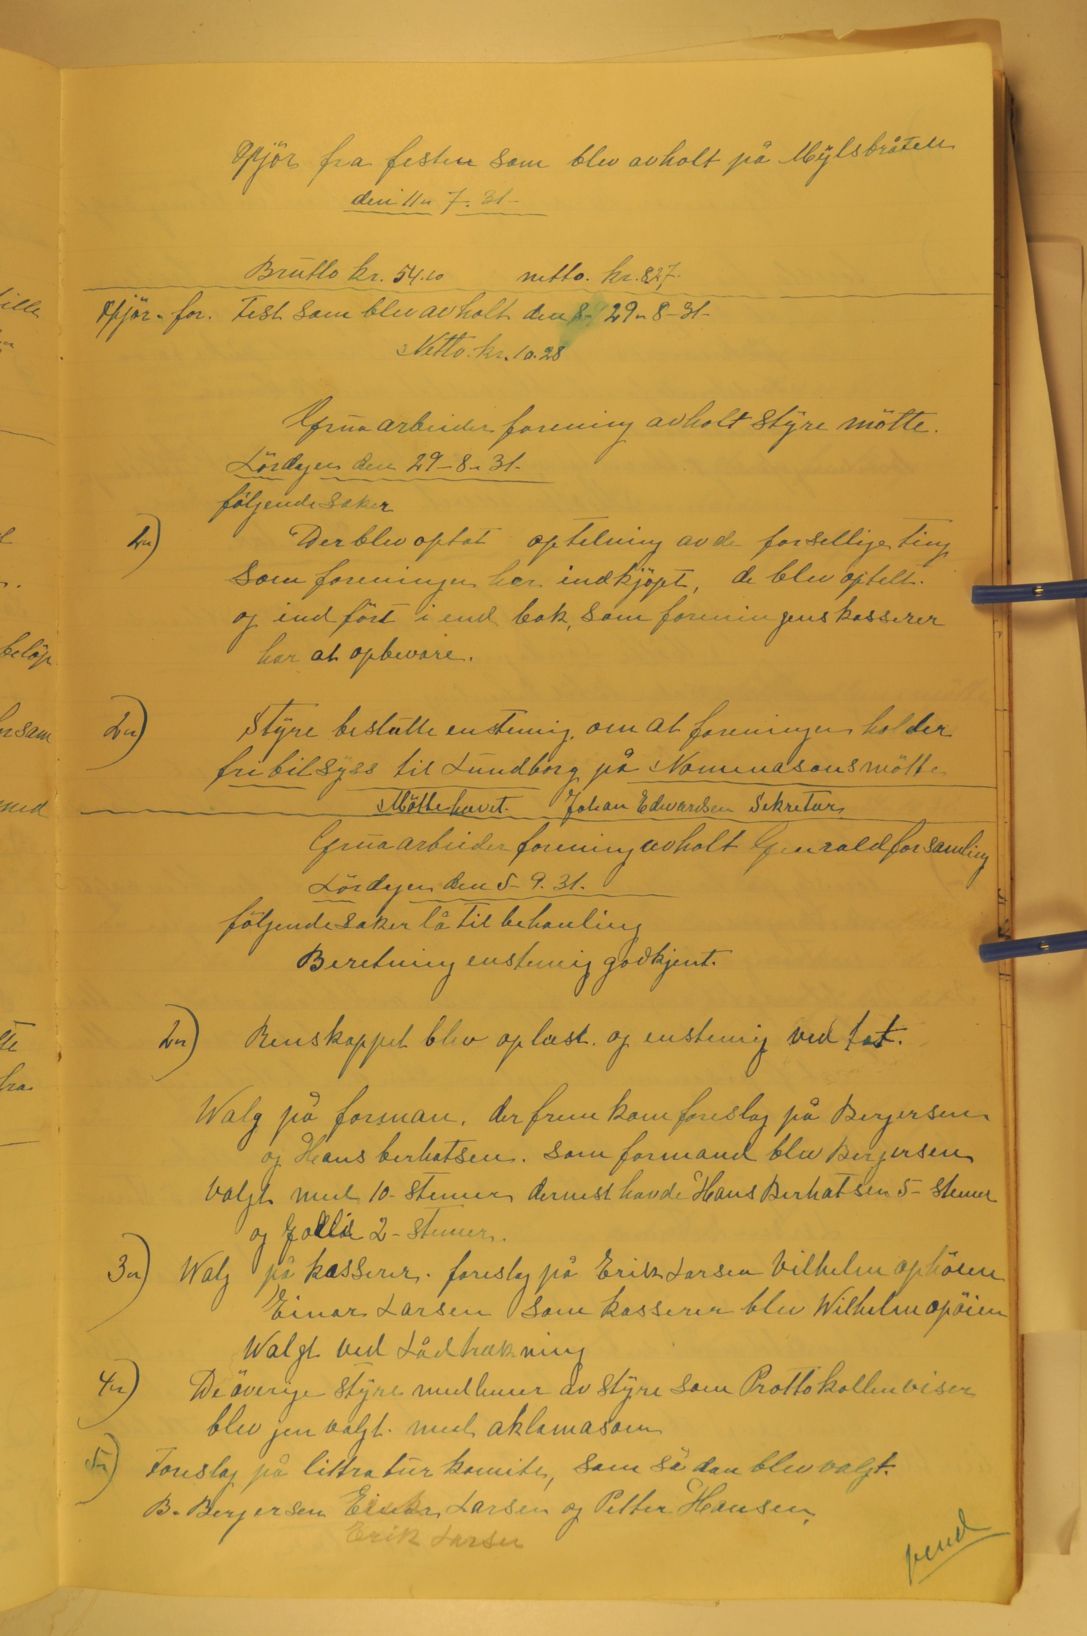 Opjör fra festen som blev avholt på Mylsbråten
den 11n 7-31-
Brutto kr. 54.10 netto. kr. 8.27.
Opjör. for. Fest som blev avholt den 29n-8-31-
Netto. kr. 10.28
Grua arbeider forening avholt Styre mötte.
Lördagen den 29-8-31-
följende saker
1n) Der blev optat optelning av de forsellige ting
som foreningen har indkjöpt, de blev optelt.
og ind fört i end bok, som foreningens kasserer
har at opbevare.
2n) Styre beslutte enstemig. om at foreningen holder
fri bilsyss til Lundborg på Nominasonsmötte
Mötte hevet. Johan Edvardsen Sekretær
Grua arbeider forening avholt Generaldforsamling
Lördagen den 5-9.31.
följende saker lå til behanling
Beretning enstemig godkjent.
2n) Renskappet blev oplæst. og enstemig ved tat.
Walg på forman. der frem kom foreslag på Bergersen
og Hans berhatsen. som formand blev Bergersen
valgt med 10-stemer dernest havde Hans Berhatsen 5- stemer
og 2-stemer.
3n) Walg på kasserer. foreslag på Erik Larsen Vilhelm ophöien
Einar Larsen som kasserer blev Wilhelm opöien
Walgt ved Lådtrækning
4n) De överige styre medlemer av styre som Prottokollen viser
blev jen valgt. med aklamasom
5n) Foreslag på littratur komite, som så dan blev valgt.
B. Bergersen Einar Larsen og Petter Hansen.
Erik Larsen
vend